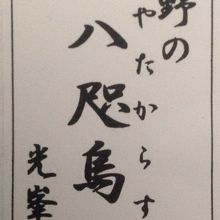 野の
やたからす
八咫烏
光峯